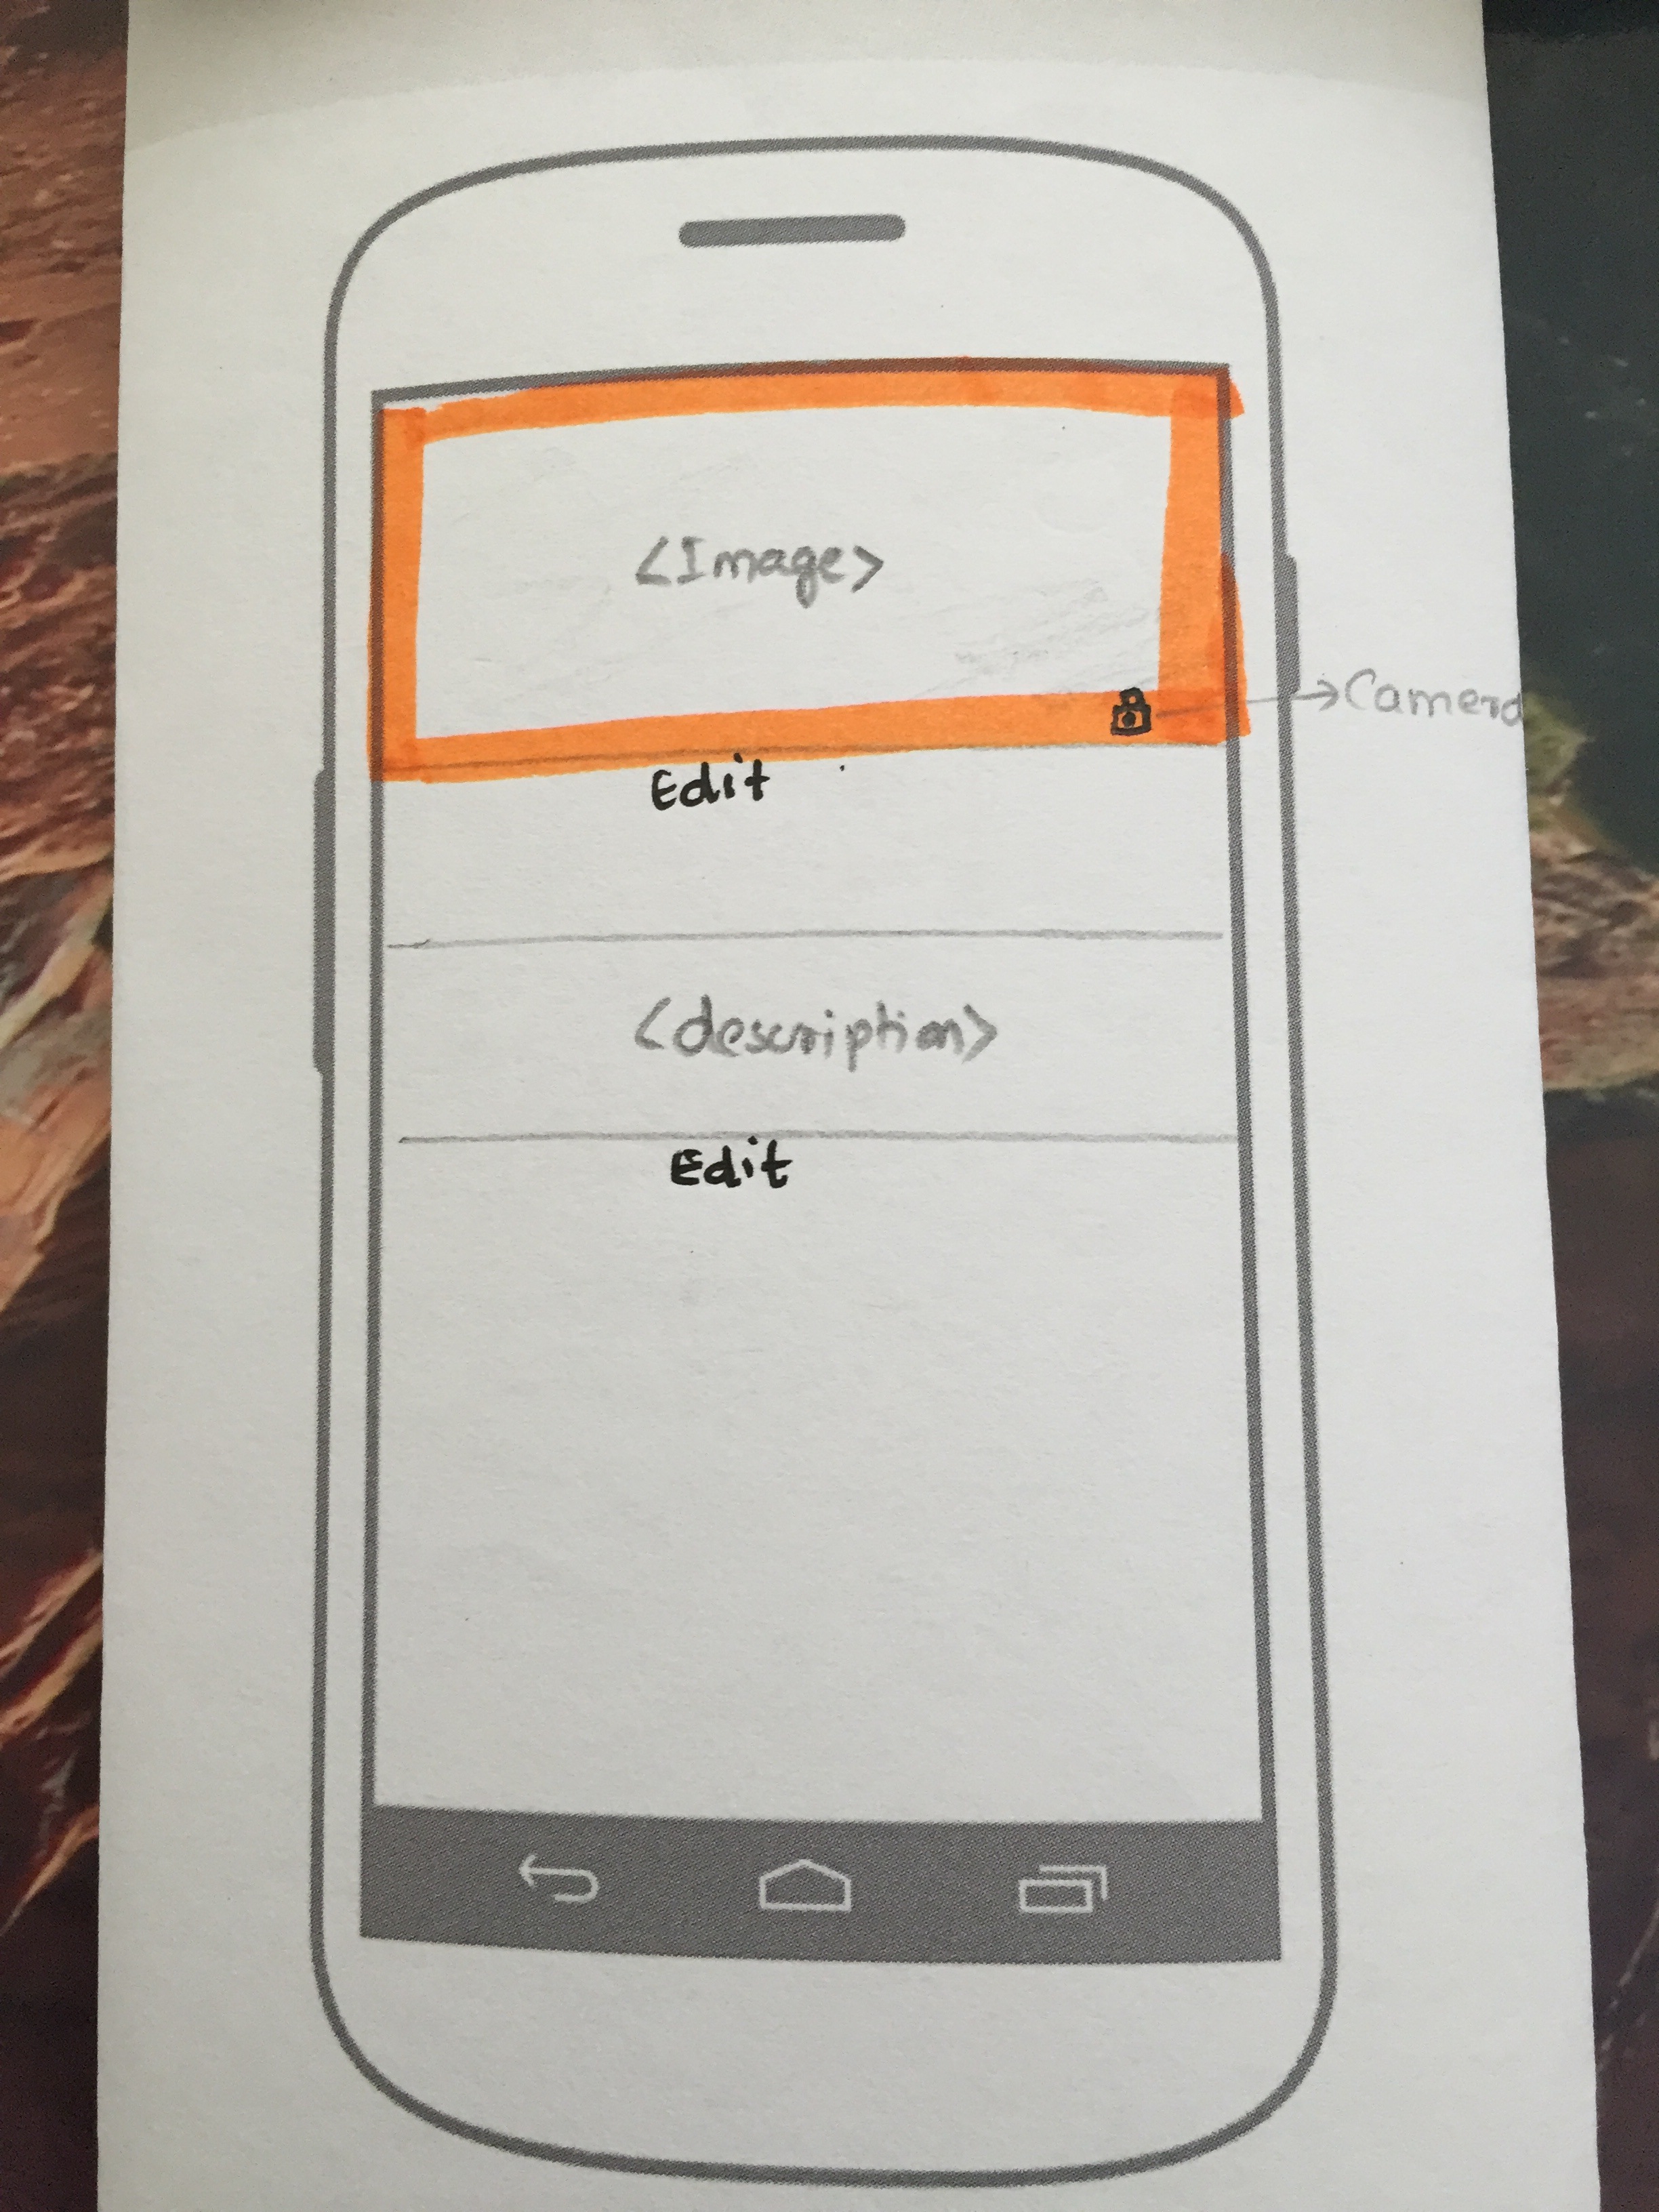 <Image>
Camera
Edit
<description>
Edit